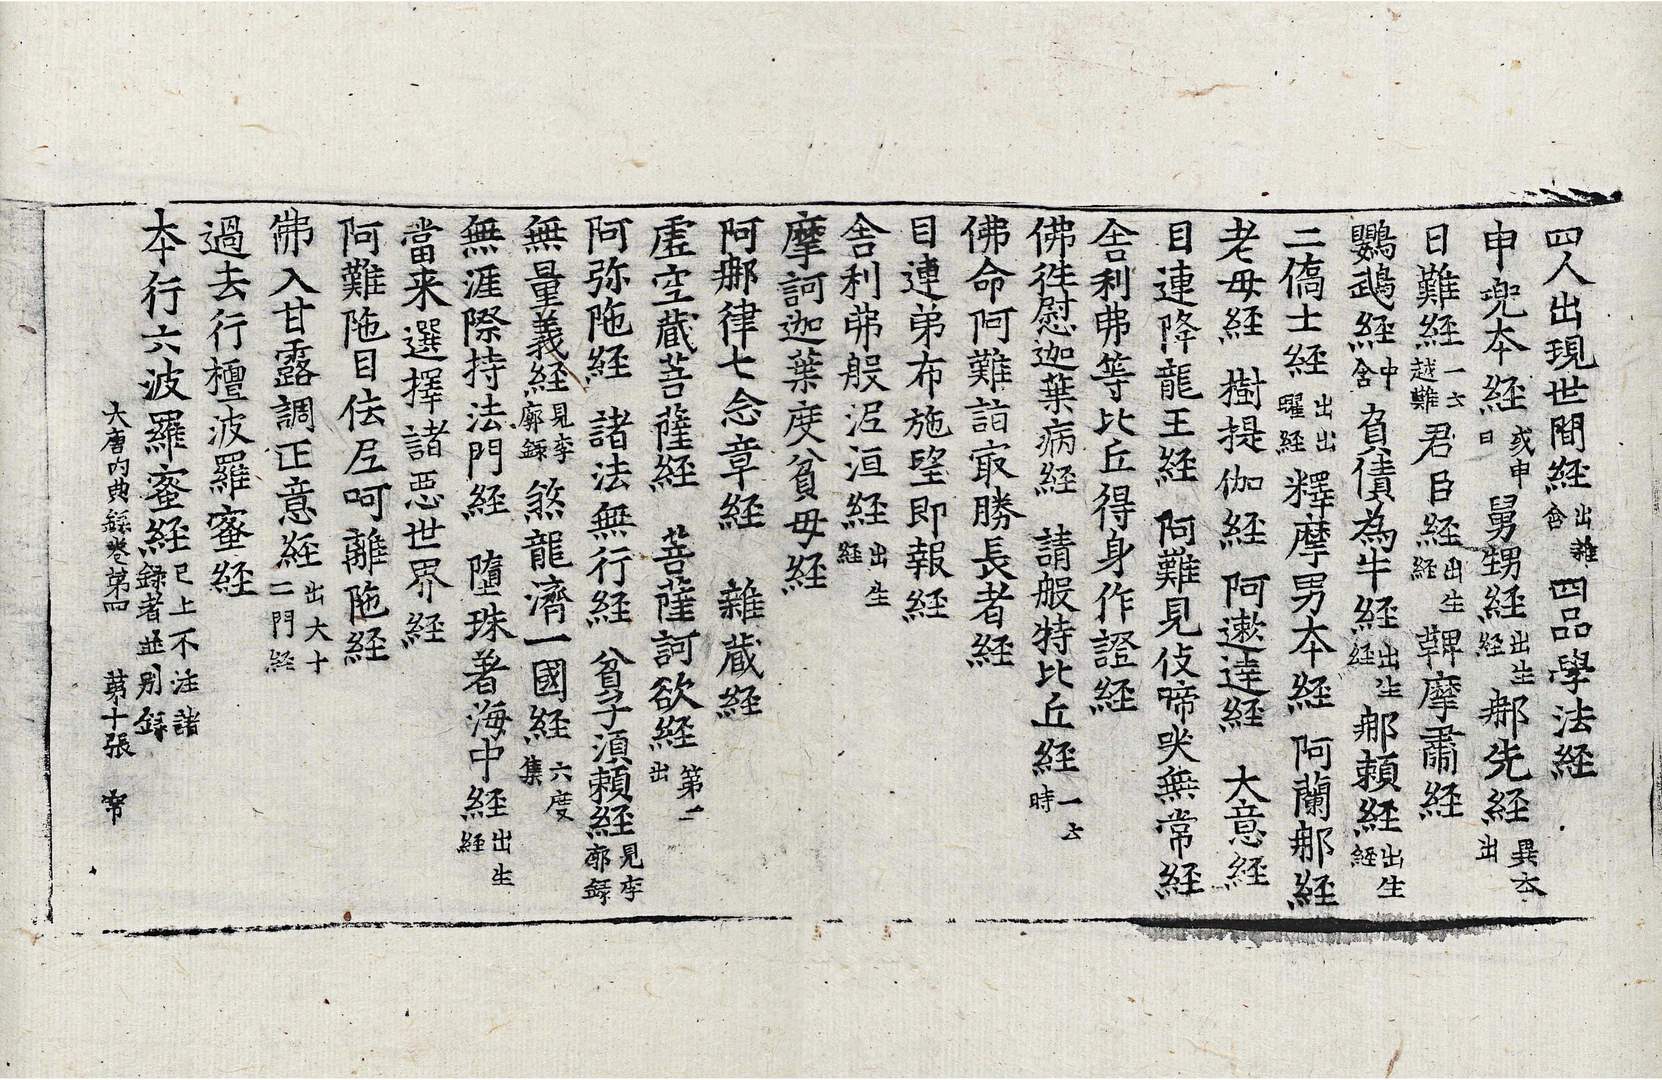 四人出現世間経出雜含 四品學法経
申兜本経或申日 舅甥経出生経 那先経異本出
日難経一云越難 君臣経出生経 鞞摩肅経
鸚鵡経中含 負債為牛経出生経 那頼経出生経
二僑士経出出曜経 釋摩男本経 阿蘭那経
老母経 樹提伽経 阿遬達経 大意経
目連降龍王経 阿難見伎啼哭無常経
舎利弗等比丘得身作證経
佛徃慰迦葉病経 請般特比丘経一云時
佛命阿難詣寂勝長者経
目連弟布施望即報経
舎利弗般泥洹経出生経
摩訶迦葉度貧母経
阿那律七念章経 雜蔵経
虚空蔵菩薩経 菩薩訶欲経第二出
阿弥陁経 諸法無行経 貧子湏頼経見李廓録
無量義経見李廓録 煞龍濟一國経六度集
無涯際持法門経 墮珠著海中経出生経
當来選擇諸惡世界経
阿難陁目佉尼呵離陁経
佛入甘露調正意経出大十二門経
過去行檀波羅蜜経
本行六波羅蜜経已上不注諸録者並别録
大唐内典録巻第四 第十張 常